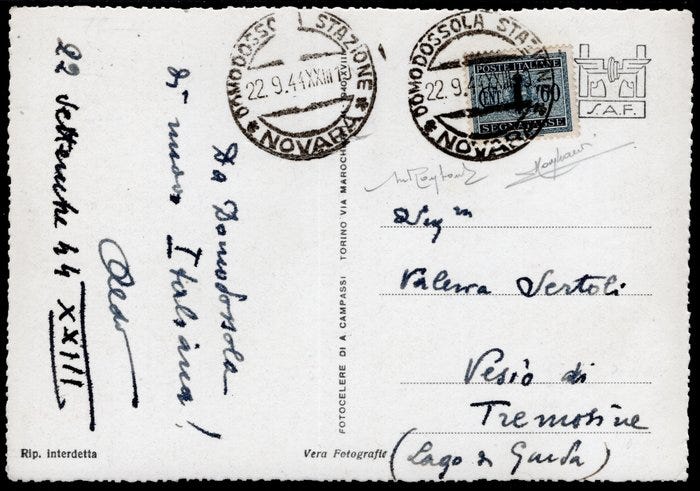 DOMODOSSOLA STAZIONE
22.9.44 XXIII
* NOVARA *
DOMODOSSOLA STAZIONE
22.9.44 XXIII
* NOVARA *
POSTE ITALIANE
CENT. 60
SEGNATASSE
S.A.F.
22 Settembre 44 XXIII
Da Domodossola
di nuovo Italiana!
Aldo
FOTOCELERE DI A. CAMPASSI TORINO VIA MAROCH
Valeria Sertoli
Vesio di
Tremosine
(Lago di Garda)
Rip. interdetta
Vera Fotografie